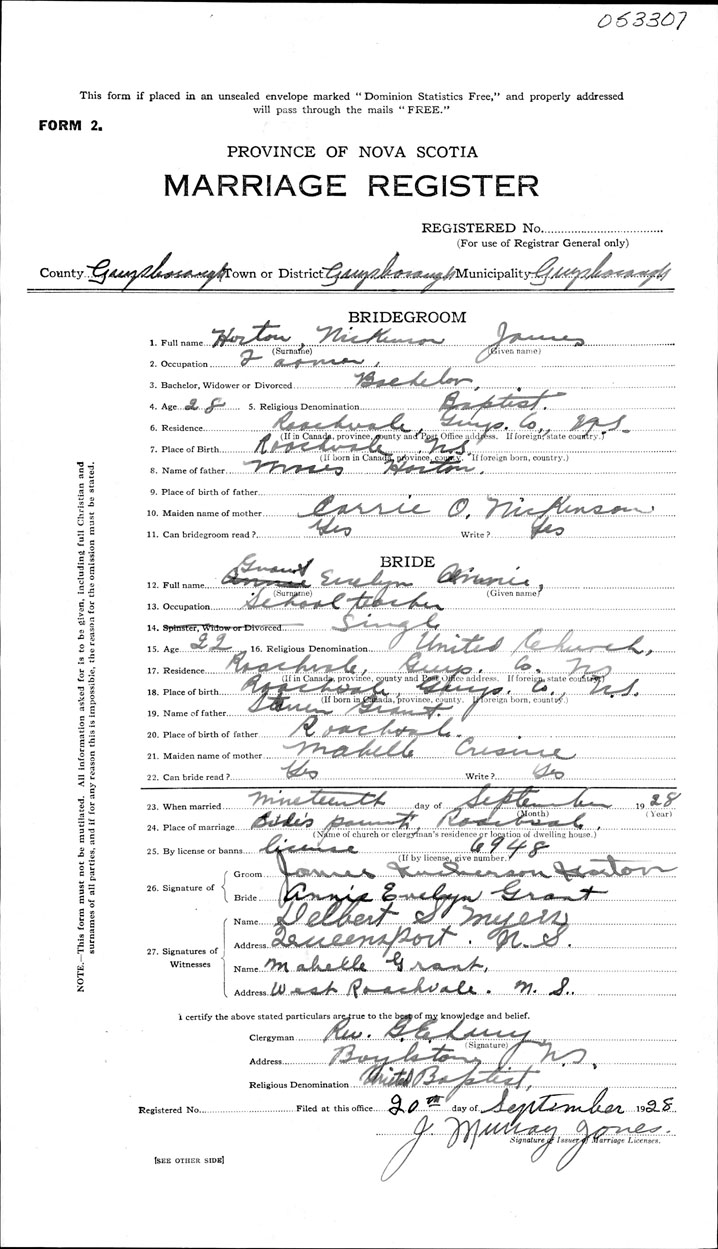 053307
This form if placed in an unsealed envelope marked "Dominion Statistics Free," and properly addressed
will pass through the mails "FREE."
FORM 2.
PROVINCE OF NOVA SCOTIA
MARRIAGE REGISTER
REGISTERED No.
(For use of Registrar General only)
County Guysborough Town or District Guysborough Municipality Guysborough
BRIDEGROOM
1. Full name Horton, Nickerson James
(Surname) (Given name)
2. Occupation Farmer,
3. Bachelor, Widower or Divorced Bachelor,
4. Age 28 5. Religious Denomination Baptist.
6. Residence Roachvale, Guys. Co., N.S.
(If in Canada, province, county and Post Office address. If foreign, state country.)
7. Place of Birth Roachvale, N.S.
(If born in Canada, province, county. If foreign born, country.)
8. Name of father Moses Horton.
9. Place of birth of father
10. Maiden name of mother Carrie O. Nickinson
11. Can bridegroom read? Yes Write? Yes
BRIDE
Grant
12. Full name Annie Evelyn Annie,
(Surname) (Given name)
13. Occupation School teacher
14. Spinster, Widow or Divorced Single
15. Age 22 16. Religious Denomination United Church,
17. Residence Roachvale, Guys. Co. N.S.
(If in Canada, province, county and Post Office address. If foreign, state country.)
18. Place of birth Roachvale, Guys. Co., N.S.
(If born in Canada, province, county. If foreign born, country.)
19. Name of father Grant.
20. Place of birth of father Roachvale.
21. Maiden name of mother Mabelle
22. Can bride read? Yes Write? Yes
23. When married nineteenth day of September 1928
(Month) (Year)
24. Place of marriage Bride's Roachvale,
(Name of church or clergyman's residence or location of dwelling house.)
25. By license or banns license 6948
(If by license, give number.)
26. Signature of Groom James Nickerson Horton
Bride Annie Evelyn Grant
27. Signatures of Witnesses
Name Delbert S Myers
Address Queensport. N.S.
Name Mabelle Grant,
Address West Roachvale. N.S.
I certify the above stated particulars are true to the best of my knowledge and belief.
Clergyman Rev. G.E.
(Signature)
Address Boylston, N.S,
Religious Denomination United Baptist,
Registered No. Filed at this office 20th day of September 1928
J. Murray Jones.
Signature of Issuer of Marriage Licenses.
[SEE OTHER SIDE]
NOTE.—This form must not be mutilated. All information asked for is to be given, including full Christian and
surnames of all parties, and if for any reason this is impossible, the reason for the omission must be stated.